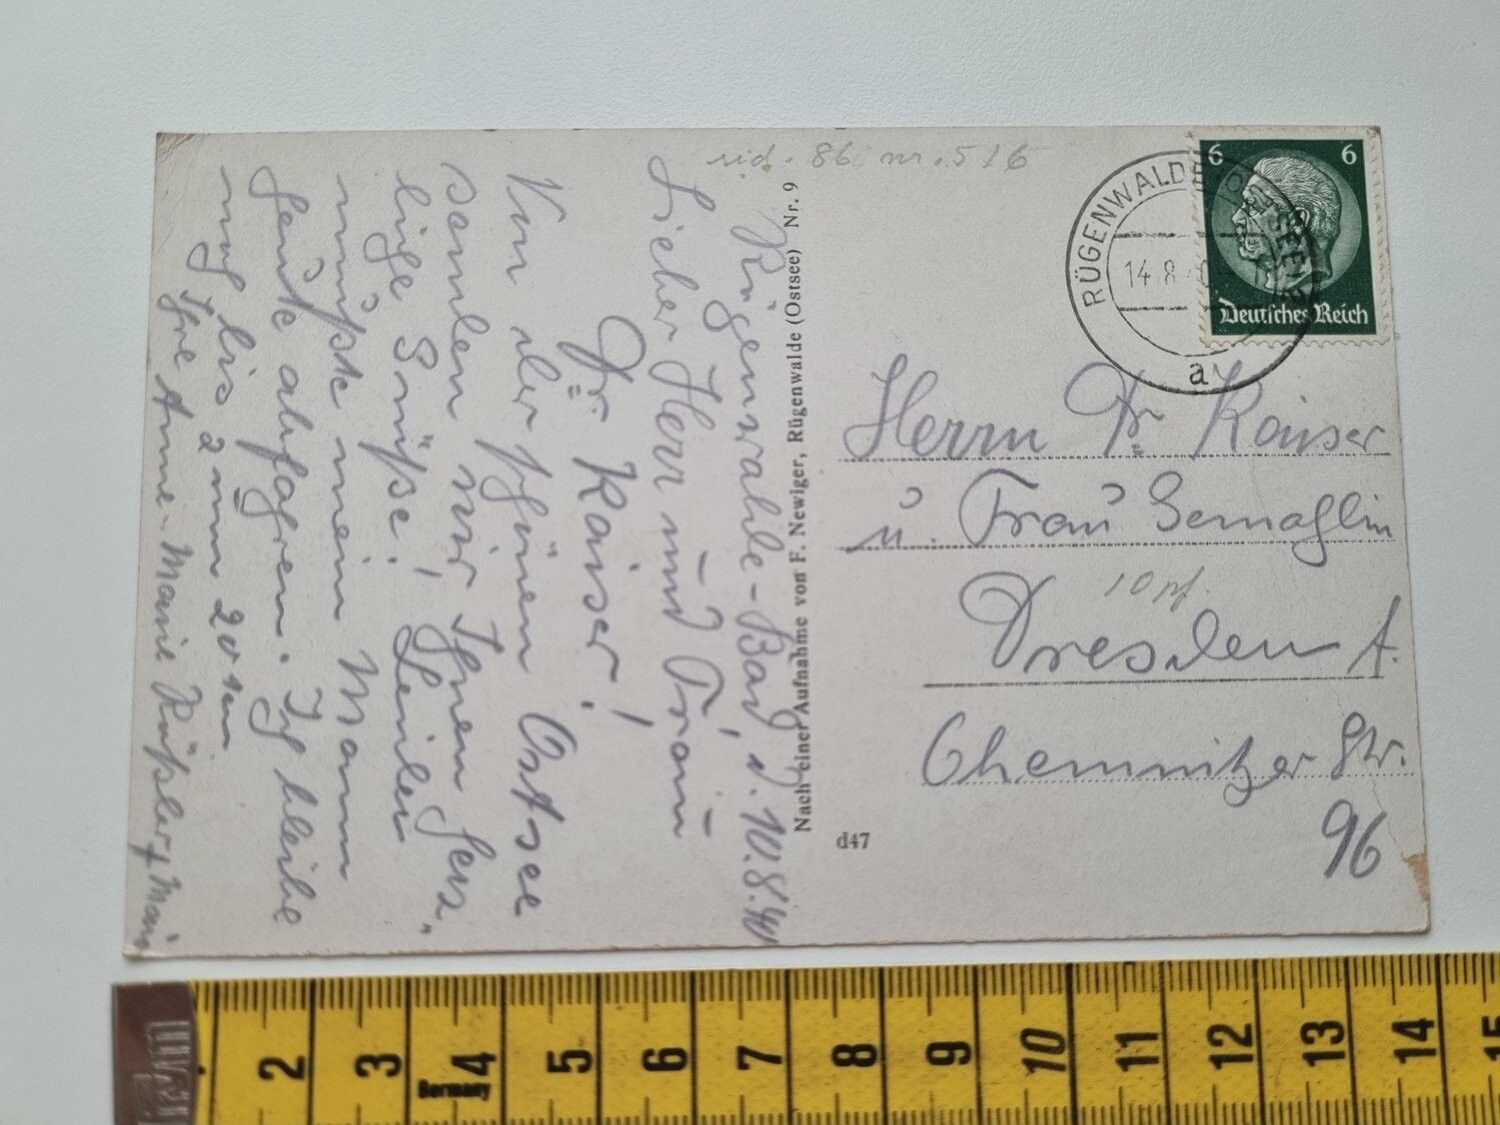 Rügenwalde-Bad, d. 10.8.40
Lieber Herr und Frau
Dr. Kaiser!
Von der schönen Ostsee
senden wir Ihnen herz-
liche Grüße! Leider
mußte mein Mann
heute abfahren. Ich bleibe
noch bis zum 20ten
Ihre Anne-Marie
Nach einer Aufnahme von F. Newiger, Rügenwalde (Ostsee) Nr. 9
d47
nr. 516
RÜGENWALDE (OSTSEE) 2
14.8.
a
6 6
Deutsches Reich
Herrn Dr. Kaiser
u. Frau Gemahlin
10 pf.
Dresden A.
Chemnitzer Str.
96
2 3 4 5 6 7 8 9 10 11 12 13 14 15
Germany